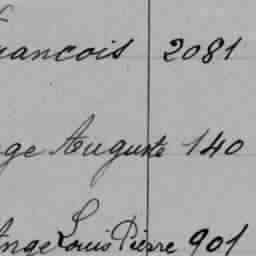 rancois 2081
ge Auguste 140
Ange Louis Pierre 901